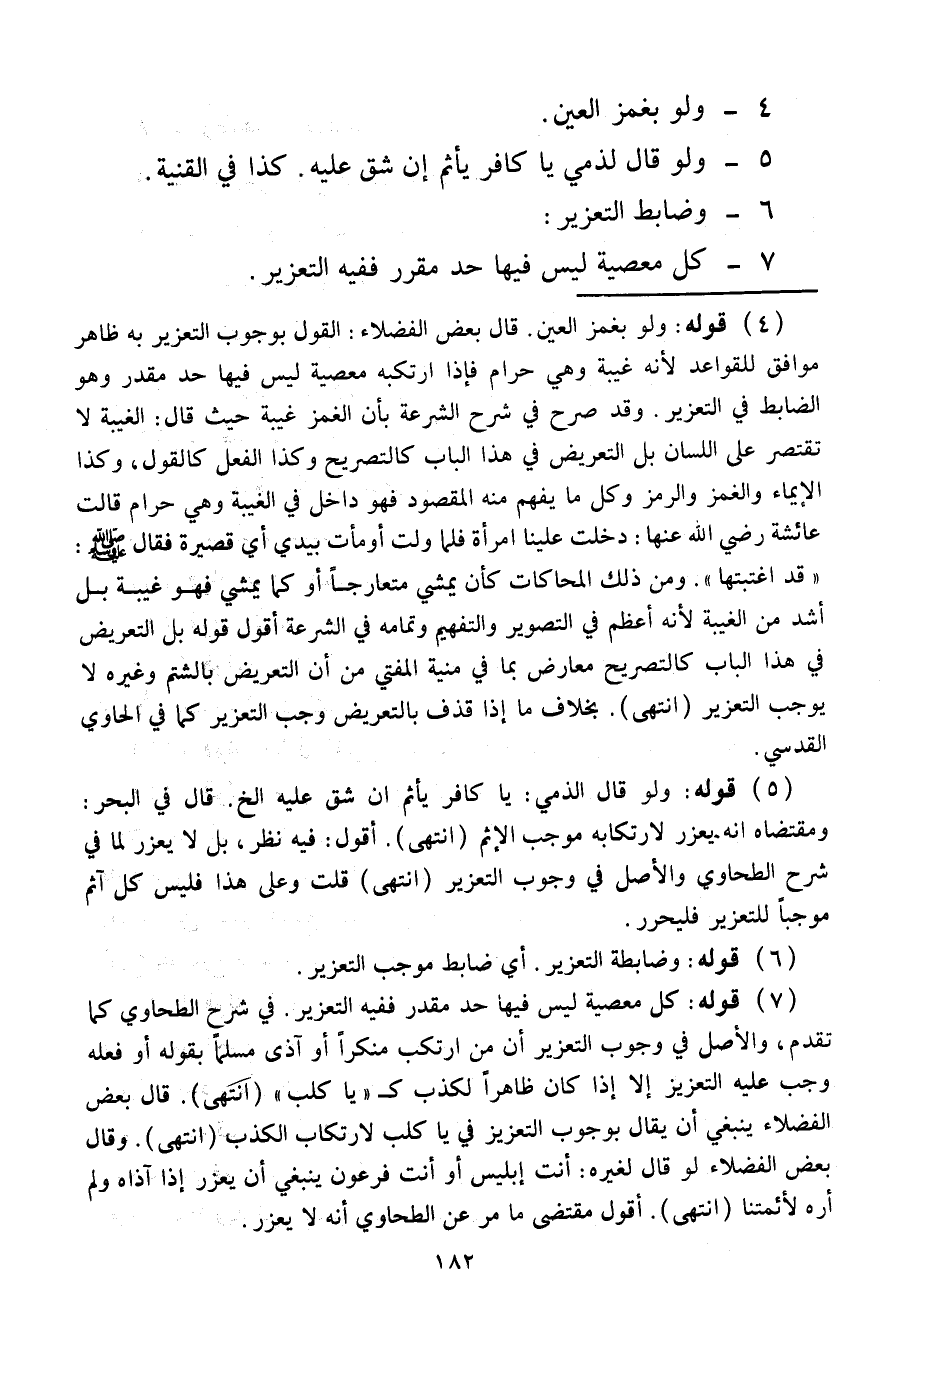 ٤ - ولو بغمز العين.
٥ - ولو قال لذمي يا كافر يأثم إن شق عليه. كذا في القنية.
٦ - وضابط التعزير:
٧ - كل معصية ليس فيها حد مقرر ففيه التعزير.
(٤) قوله: ولو بغمز العين. قال بعض الفضلاء: القول بوجوب التعزير به ظاهر
موافق للقواعد لأنه غيبة وهي حرام فإذا ارتكبه معصية ليس فيها حد مقدر وهو
الضابط في التعزير. وقد صرح في شرح الشرعة بأن الغمز غيبة حيث قال: الغيبة لا
تقتصر على اللسان بل التعريض في هذا الباب كالتصريح وكذا الفعل كالقول، وكذا
الإيماء والغمز والرمز وكل ما يفهم منه المقصود فهو داخل في الغيبة وهي حرام قالت
عائشة رضي الله عنها: دخلت علينا امرأة فلما ولت أومأت بيدي أي قصيرة فقال ﷺ:
«قد اغتبتها». ومن ذلك المحاكات كأن يمشي متعارجاً أو كما يمشي فهو غيبة بل
أشد من الغيبة لأنه أعظم في التصوير والتفهيم وتمامه في الشرعة أقول قوله بل التعريض
في هذا الباب كالتصريح معارض بما في منية المفتي من أن التعريض بالشتم وغيره لا
يوجب التعزير (انتهى). بخلاف ما إذا قذف بالتعريض وجب التعزير كما في الحاوي
القدسي.
(٥) قوله: ولو قال الذمي: يا كافر يأثم ان شق عليه الخ. قال في البحر:
ومقتضاه انه يعزر لارتكابه موجب الإثم (انتهى). أقول: فيه نظر، بل لا يعزر لما في
شرح الطحاوي والأصل في وجوب التعزير (انتهى) قلت وعلى هذا فليس كل آثم
موجباً للتعزير فليحرر.
(٦) قوله: وضابطة التعزير. أي ضابط موجب التعزير.
(٧) قوله: كل معصية ليس فيها حد مقدر ففيه التعزير. في شرح الطحاوي كما
تقدم، والأصل في وجوب التعزير أن من ارتكب منكراً أو آذى مسلماً بقوله أو فعله
وجب عليه التعزيز إلا إذا كان ظاهراً لكذب كـ «يا كلب» (انتهى). قال بعض
الفضلاء ينبغي أن يقال بوجوب التعزيز في يا كلب لارتكاب الكذب (انتهى). وقال
بعض الفضلاء لو قال لغيره: أنت إبليس أو أنت فرعون ينبغي أن يعزر إذا آذاه ولم
أره لأئمتنا (انتهى). أقول مقتضى ما مر عن الطحاوي أنه لا يعزر.
١٨٢